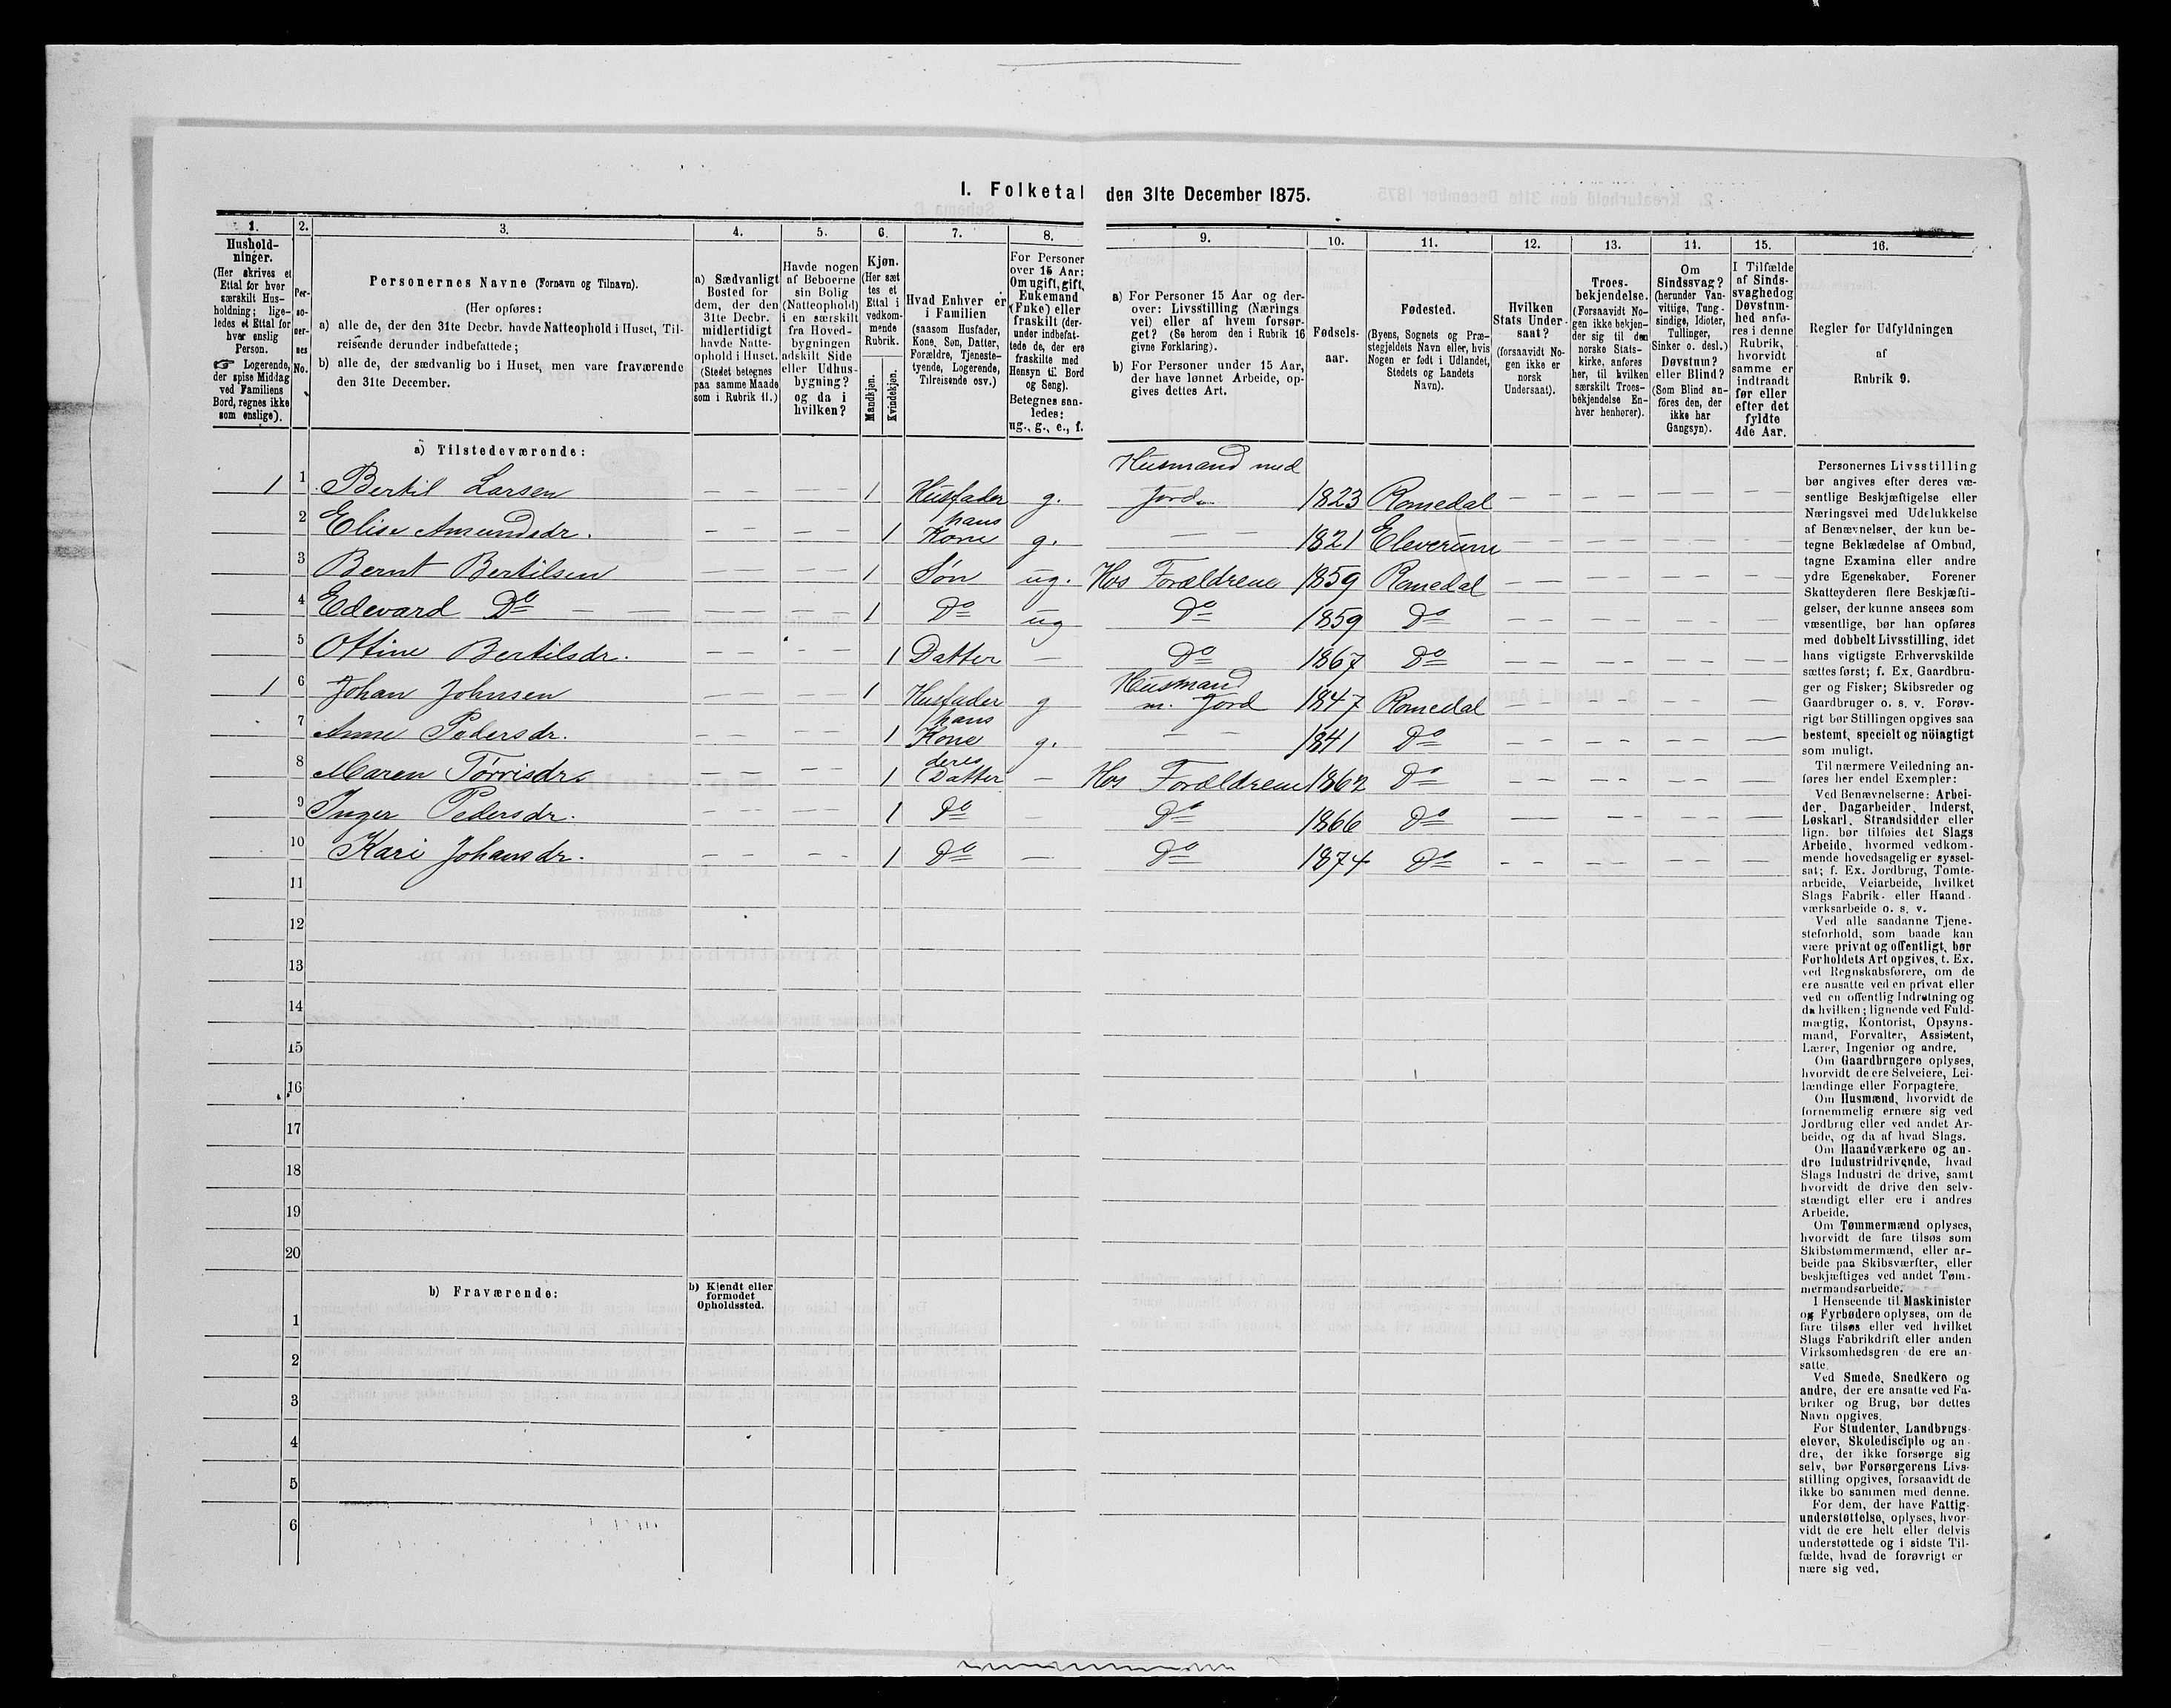 I. Folketal den 31te December 1875.
1. 2. 3. 4. 5. 6. 7. 8. 9. 10. 11. 12. 13. 14. 15. 16.
Hushold-
ninger.
(Her skrives et
Ettal for hver
særskilt Hus-
holdning; lige-
ledes et Ettal for
hver enslig
Person.
☞ Logerende,
der spise Middag
ved Familiens
Bord, regnes ikke
som enslige).
Per-
so-
ner-
nes
No.
Personernes Navne (Fornavn og Tilnavn).
(Her opføres:
a) alle de, der den 31te Decbr. havde Natteophold i Huset, Til-
reisende derunder indbefattede;
b) alle de, der sædvanlig bo i Huset, men vare fraværende
den 31te December.
a) Sædvanligt
Bosted for
dem, der den
31te Decbr.
midlertidigt
havde Natte-
ophold i Huset.
(Stedet betegnes
paa samme Maade
som i Rubrik 11.)
Havde nogen
af Beboerne
sin Bolig
(Natteophold)
i en særskilt
fra Hoved-
bygningen
adskilt Side
eller Udhus-
bygning?
og da i
hvilken?
Kjøn.
(Her sæt
tes et
Ettal i
vedkom-
mende
Rubrik.
Mandkjøn.
Kvindekjøn.
Hvad Enhver er
i Familien
(saasom Husfader,
Kone, Søn, Datter,
Forældre, Tjeneste-
tyende, Logerende,
Tilreisende osv.)
For Personer
over 15 Aar:
Om ugift, gift,
Enkemand
(Enke) eller
fraskilt (der-
under indbefat-
tede de, der ere
fraskilte med
Hensyn til Bord
og Seng).
Betegnes saa-
ledes:
ug., g., e., f.
a) For Personer 15 Aar og der-
over: Livsstilling (Nærings
vei) eller af hvem forsør-
get? (Se herom den i Rubrik 16
givne Forklaring).
b) For Personer under 15 Aar,
der have lønnet Arbeide, op-
gives dettes Art.
Fødsels-
aar.
Fødested.
(Byens, Sognets og Præ-
stegjeldets Navn eller, hvis
Nogen er født i Udlandet,
Stedets og Landets
Navn).
Hvilken
Stats Under-
saat?
(forsaavidt No-
gen ikke er
norsk
Undersaat).
Troes-
bekjendelse.
(Forsaavidt No-
gen ikke bekjen-
der sig til den
norske Stats-
kirke, anføres
her, til hvilken
særskilt Troes-
bekjendelse En-
hver henhører).
Om
Sindssvag?
(herunder Van-
vittige, Tung-
sindige, Idioter,
Tullinger,
Sinker o. desl.)
Døvstum?
eller Blind?
(Som Blind an-
føres den, der
ikke har
Gangsyn).
I Tilfælde
af Sinds-
svaghed og
Døvstum-
hed anfø-
res i denne
Rubrik,
hvorvidt
samme er
indtraadt
før eller
efter det
fyldte
4de Aar.
Regler for Udfyldningen
af
Rubrik 9.
a) Tilstedeværende:
Husmand med
1 1 Bertil Larsen 1 Husfader g. Jord 1823 Romedal
2 Elise Amundsdr. 1 hans Kone g. 1821 Eleverum
3 Bernt Bertilsen 1 Søn ug. Hos Forældrene 1859 Romedal
4 Edevard Do 1 Do ug Do 1859 Do
5 Ottine Bertilsdr. 1 Datter — Do 1867 Do
1 6 Johan Johnsen 1 Husfader g Husmand m. Jord 1847 Romedal
7 Anne Pedersdr. 1 hans Kone g. 1841 Do
8 Maren Tørrisdr. 1 deres Datter — Hos Forældrene 1862 Do
9 Inger Pedersdr. 1 Do — Do 1866 Do
10 Kari Johansdr. 1 Do — Do 1874 Do
11
12
13
14
15
16
17
18
19
20
b) Fraværende:
b) Kjendt eller
formodet
Opholdssted.
1
2
3
4
5
6
Personernes Livsstilling
bør angives efter deres væ-
sentlige Beskjæftigelse eller
Næringsvei med Udelukkelse
af Benævnelser, der kun be-
tegne Beklædelse af Ombud,
tagne Examina eller andre
ydre Egenskaber. Forener
Skatteyderen flere Beskjæfti-
gelser, der kunne ansees som
væsentlige, bør han opføres
med dobbelt Livsstilling, idet
hans vigtigste Erhvervskilde
sættes først; f. Ex. Gaardbru-
ger og Fisker; Skibsreder og
Gaardbruger o. s. v. Forøv-
rigt bør Stillingen opgives saa
bestemt, specielt og nöiagtigt
som muligt.
Til nærmere Veiledning an-
føres her endel Exempler:
Ved Benævnelserne: Arbei-
der, Dagarbeider, Inderst,
Løskarl, Strandsidder eller
lign. bør tilføies det Slags
Arbeide, hvormed vedkom-
mende hovedsagelig er syssel-
sat; f. Ex. Jordbrug, Tomte-
arbeide, Veiarbeide, hvilket
Slags Fabrik- eller Haand-
værksarbeide o. s. v.
Ved alle saadanne Tjene-
steforhold, som baade kan
være privat og offentligt, bør
Forholdets Art opgives, t. Ex.
ved Regnskabsførere, om de
ere ansatte ved en privat eller
ved en offentlig Indretning og
da hvilken; lignende ved Fuld-
mægtig, Kontorist, Opsyns-
mand, Forvalter, Assistent,
Lærer, Ingeniør og andre.
Om Gaardbrugere oplyses,
hvorvidt de ere Selveiere, Lei-
lændinge eller Forpagtere.
Om Husmænd, hvorvidt de
fornemmelig ernære sig ved
Jordbrug eller ved andet Ar-
beide, og da af hvad Slags.
Om Haandværkere og an-
dre Industridrivende, hvad
Slags Industri de drive, samt
hvorvidt de drive den selv-
stændigt eller ere i andres
Arbeide.
Om Tømmermænd oplyses,
hvorvidt de fare tilsøs som
Skibstømmermænd, eller ar-
beide paa Skibsværfter, eller
beskjæftiges ved andet Tøm-
mermandsarbeide.
I Henseende til Maskinister
og Fyrbødere oplyses, om de
fare tilsøs eller ved hvilket
Slags Fabrikdrift eller anden
Virksomhedsgren de ere an-
satte.
Ved Smede, Snedkere og
andre, der ere ansatte ved Fa-
briker og Brug, bør dettes
Navn opgives.
For Studenter, Landbrugs-
elever, Skoledisciple og an-
dre, der ikke forsørge sig
selv, bør Forsørgerens Livs-
stilling opgives, forsaavidt de
ikke bo sammen med denne.
For dem, der have Fattig-
understøttelse, oplyses, hvor-
vidt de ere helt eller delvis
understøttede og i sidste Til-
fælde, hvad de forøvrigt er-
nære sig ved.